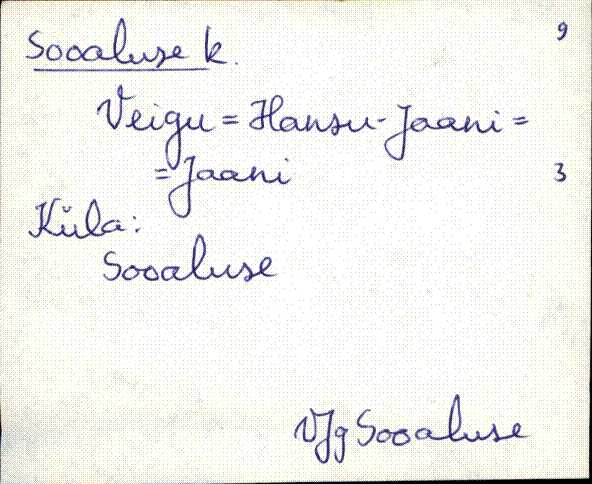 Sooaluse k. 9
Veigu = Hansu-Jaani =
= Jaani 3
Küla:
Sooaluse
VJg Sooaluse